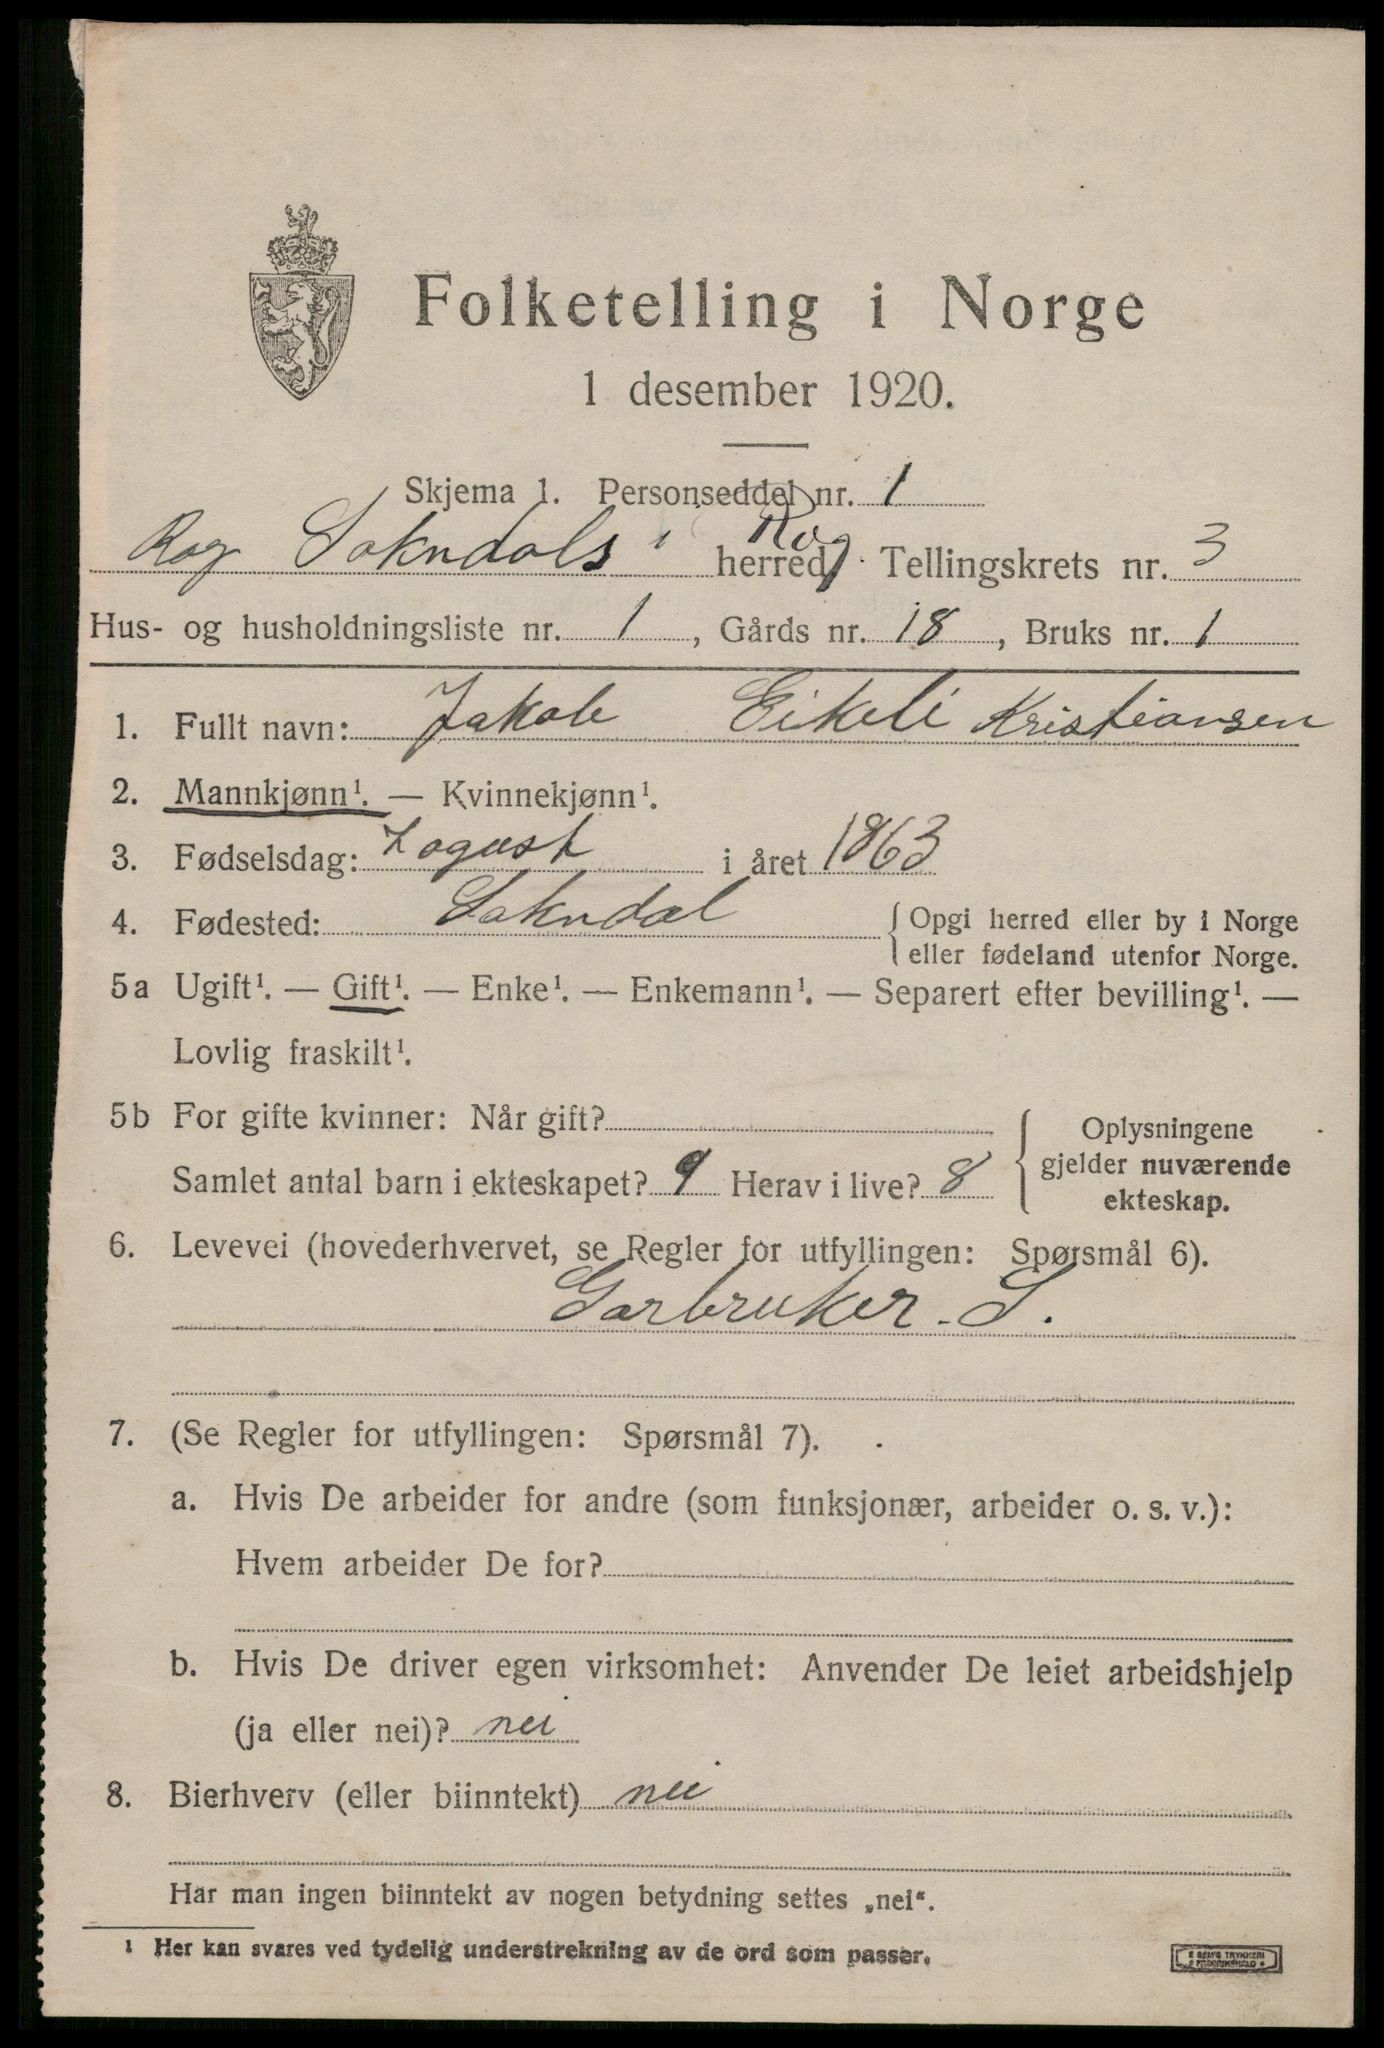 Folketelling i Norge
1 desember 1920.
Skjema 1. Personseddel nr. 1
Rog Sokndals i herred Rog. Tellingskrets nr. 3
Hus- og husholdningsliste nr. 1, Gårds nr. 18, Bruks nr. 1
1. Fullt navn: Jakob Eikeli Kristiansen
2. Mannkjønn¹. — Kvinnekjønn¹.
3. Fødselsdag: 7 ogust i året 1863
4. Fødested: Sokndal { Opgi herred eller by i Norge
eller fødeland utenfor Norge.
5a Ugift¹. — Gift¹. — Enke¹. — Enkemann¹. — Separert efter bevilling¹. —
Lovlig fraskilt¹.
5b For gifte kvinner: Når gift?
Samlet antal barn i ekteskapet? 9 Herav i live? 8
{ Oplysningene
gjelder nuværende
ekteskap.
6. Levevei (hovederhvervet, se Regler for utfyllingen: Spørsmål 6).
Gorbruker. S.
7. (Se Regler for utfyllingen: Spørsmål 7).
a. Hvis De arbeider for andre (som funksjonær, arbeider o. s. v.):
Hvem arbeider De for?
b. Hvis De driver egen virksomhet: Anvender De leiet arbeidshjelp
(ja eller nei)? nei
8. Bierhverv (eller biinntekt) nei
Har man ingen biinntekt av nogen betydning settes „nei“.
¹ Her kan svares ved tydelig understrekning av de ord som passer.
SEM'S TRYKKERI
FREDRIKSHALD